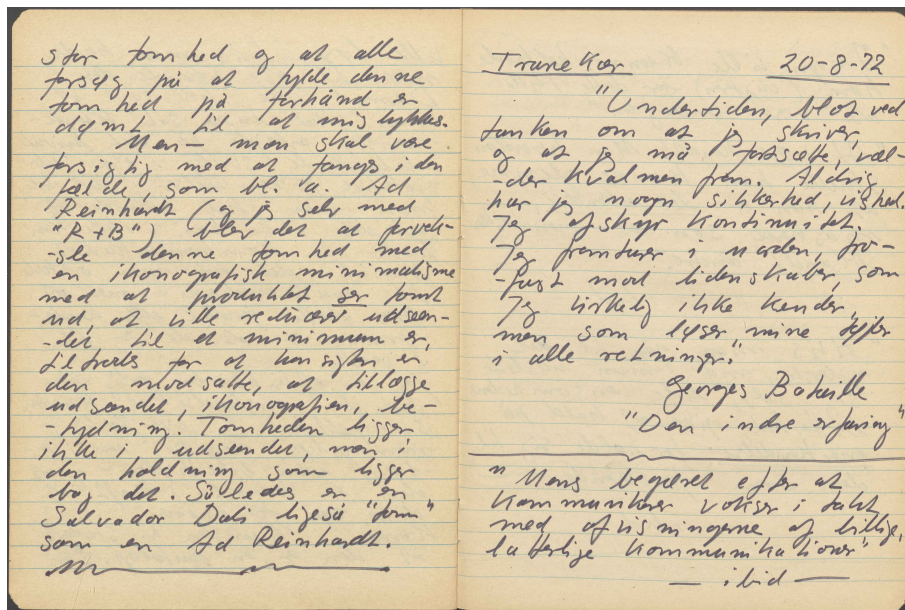 stor tomhed og at alle
forsøg på at fylde denne
tomhed på forhånd er
dømt til at mislykkes.
Men — man skal være
forsigtig med at fanges i den
fælde, som bl. a. Ad
Reinhardt (og jeg selv med
"R+B") blev det at forvek-
-sle denne tomhed med
en ikonografisk minimalisme
med at produktet ser tomt
ud, at ville reducere udseen-
-det til et minimum er,
til trods for at hensigten er
den modsatte, at tillægge
udseendet, ikonografien, be-
-tydning. Tomheden ligger
ikke i udseendet, men i
den holdning som ligger
bag det. Således er en
Salvador Dali ligeså "tom"
som en Ad Reinhardt.
Tranekær 20-8-72
"Undertiden, blot ved
tanken om at jeg skriver,
og at jeg må fortsætte, væl-
-der kvalmen frem. Aldrig
har jeg nogen sikkerhed, vished.
Jeg afskyr kontinuitet.
Jeg fremturer i uorden, tro-
-fast mod lidenskaber, som
jeg virkelig ikke kender,
men som lyser mine
i alle retninger."
Georges Bataille
"Den indre erfaring"
"Mens begæret efter at
kommunikere vokser i takt
med afvisningerne af billige,
latterlige kommunikationer"
— ibid —